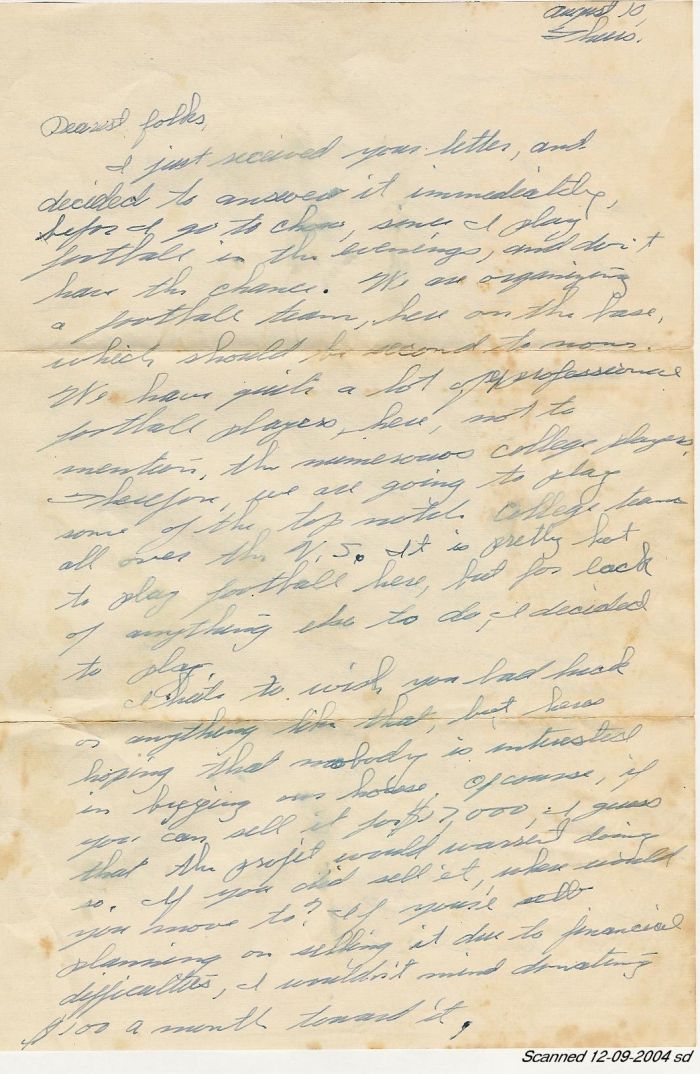 August 10,
Thurs.
Dearest folks,
I just received your letter, and
decided to answer it immediately,
before I go to chow, since I play
football in the evenings, and don't
have the chance. We are organizing
a football team, here on the base,
which should be second to none.
We have quite a lot of professional
football players, here, not to
mention, the numerous college players,
Therefore, we are going to play
some of the top notch college teams
all over the U.S. It is pretty hot
to play football here, but for lack
of anything else to do, I decided
to play.
I hate to wish you bad luck
or anything like that, but here's
hoping that nobody is interested
in buying our house. Of course, if
you can sell it for 7,000, I guess
that the profit would warrent doing
so. If you did sell it, where would
you move to? If you're
planning on selling it due to financial
difficulties, I wouldn't mind donating
$100 a month toward it.
Scanned 12-09-2004 sd